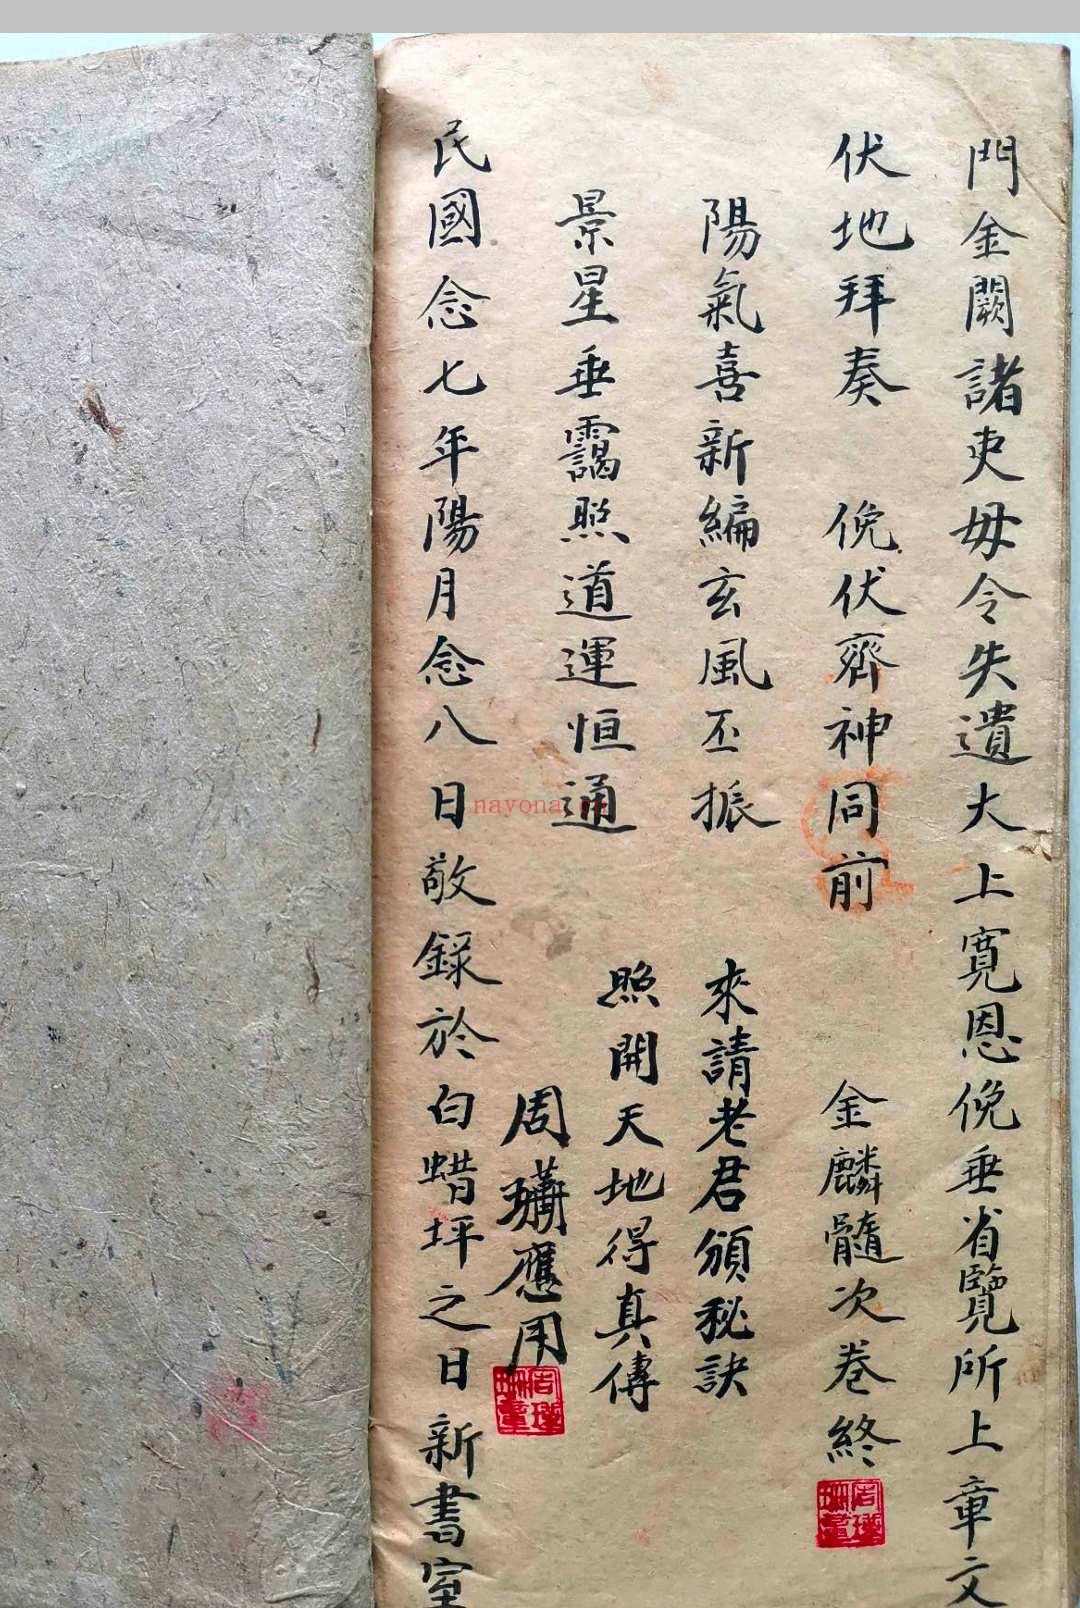 門金闕諸吏毋令失遺大上寬恩俛垂省覽所上章文
伏地拜奏 俛伏齊神同前 金麟髓次卷終
陽氣喜新編玄風丕振 來請老君頒秘訣
景星垂靄照道運恒通 照開天地得真傳
周應用
民國念七年陽月念八日敬錄於白蜡坪之日新書室
nayona.cn